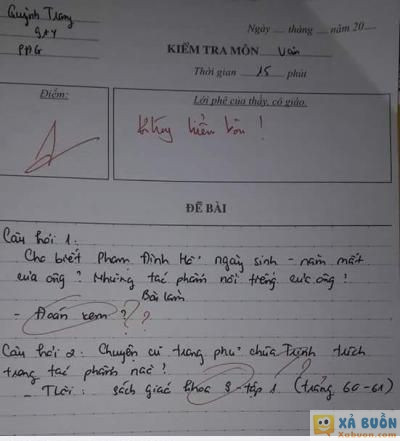 Quỳnh Trang
9A4
PPG
Ngày .... tháng .... năm 20....
KIỂM TRA MÔN Văn
Thời gian 15 phút
Điểm:
Lời phê của thầy, cô giáo.
hiểu bài !
ĐỀ BÀI
Câu hỏi 1:
Cho biết Phạm Đình Hổ ngày sinh - năm mất
của ông ? Những tác phẩm nổi tiếng của ông ?
Bài làm
- Đoán xem ? ?
Câu hỏi 2: Chuyện cũ trong phủ chúa Trịnh trích
trong tác phẩm nào ?
- Thời : sách giáo khoa 9 - tập 1 (trang 60 - 61)
XẢ BUỒN
Xabuon.com